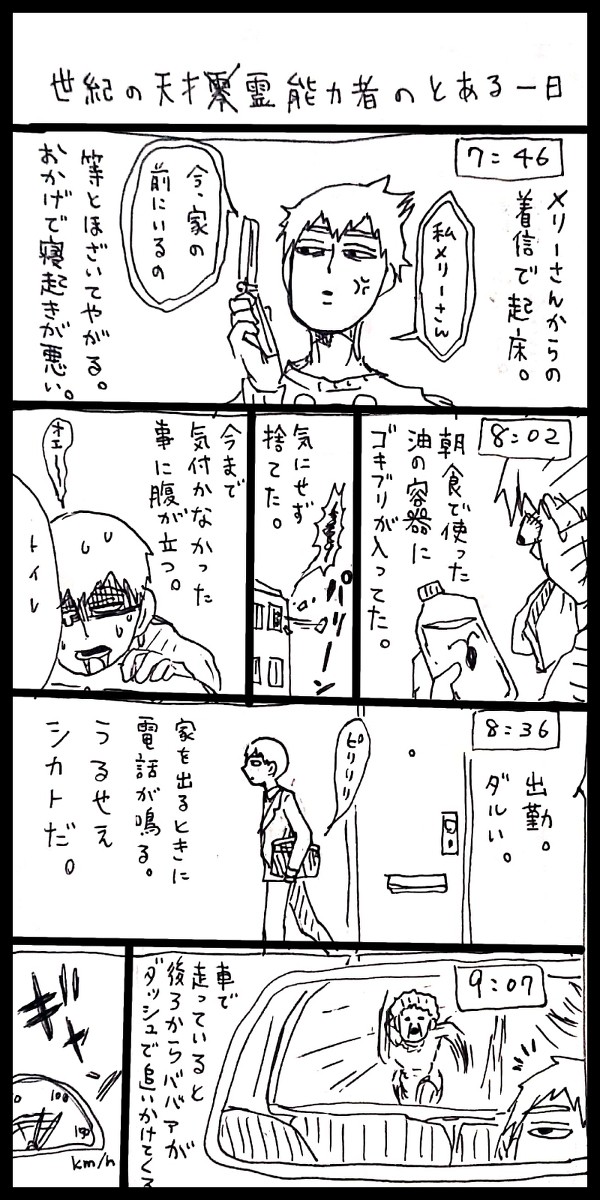 世紀の天才霊能力者のとある一日
7:46
メリーさんからの
着信で起床。
私メリーさん
今、家の
前にいるの
等とほざいてやがる。
おかげで寝起きが悪い。
8:02
朝食で使った
油の容器に
ゴキブリが入ってた。
気にせず
捨てた。
パリーン
今まで
気付かなかった
事に腹が立つ。
オエーー
トイレ
8:36
出勤。
ダルい。
ピリリリ
家を出るときに
電話が鳴る。
うるせえ
シカトだ。
9:07
車で
走っていると
後ろからババアが
ダッシュで追いかけてくる
100
km/h